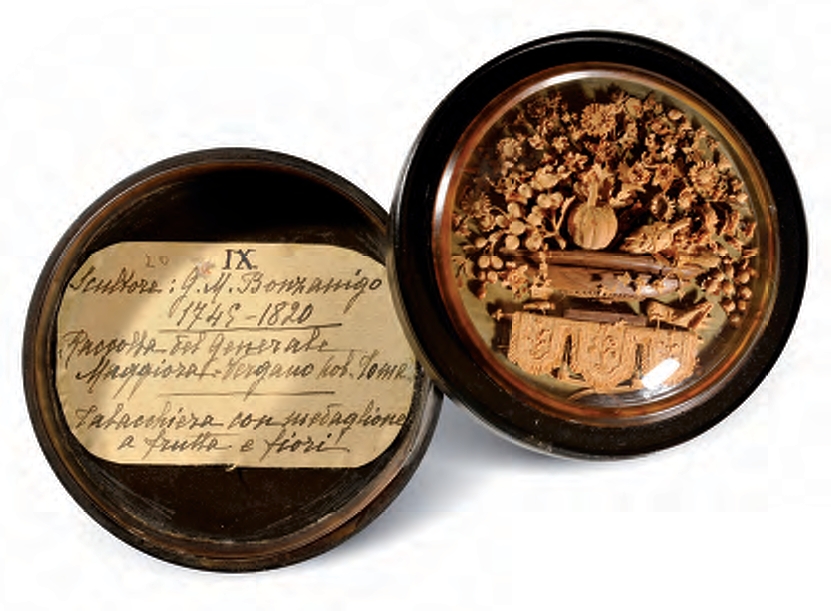 20
IX
Scultore: G. M. Bonzanigo
1745-1820
Raccolta del generale
Maggiora-Vergano nob. Toma
Tabacchiera con medaglione
a frutta e fiori